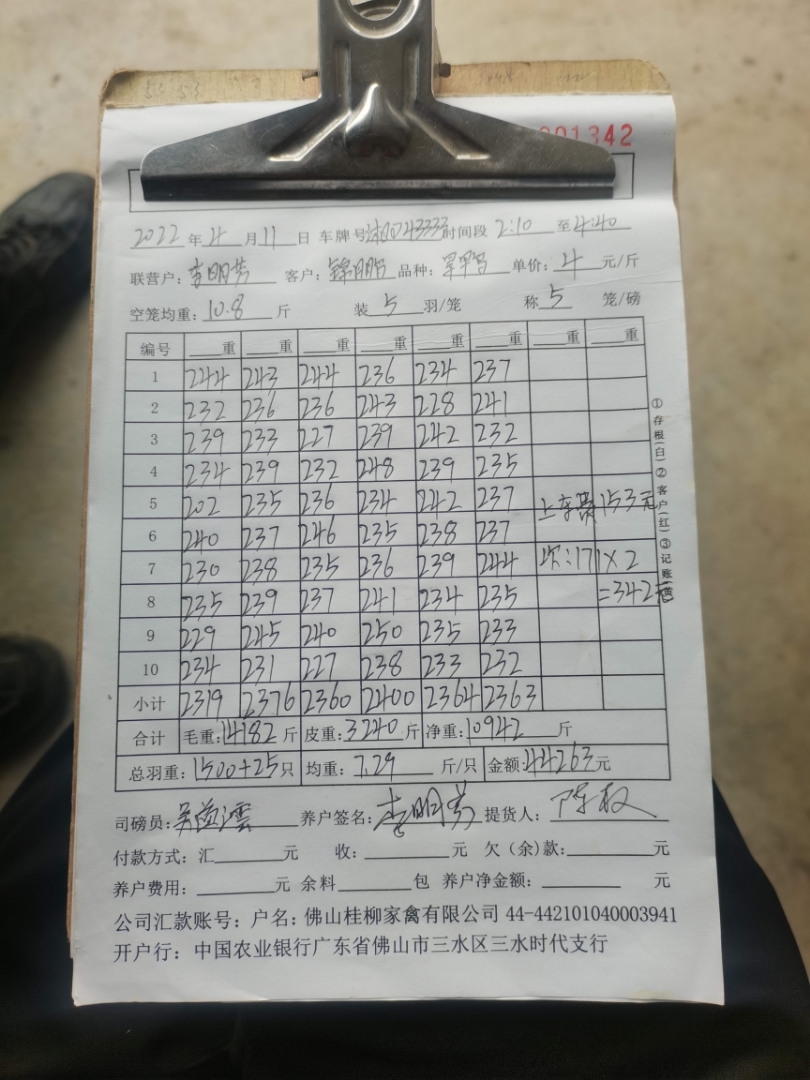 001342
2022年4月11日 车牌号 43333 时间段 2:10 至 4:40
联营户:李明芳 客户:锦明 品种: 单价:4 元/斤
空笼均重:10.8 斤 装 5 羽/笼 称 5 笼/磅
编号 重 重 重 重 重 重 重 重
1 244 243 244 236 234 237
2 232 236 236 243 228 241
3 239 233 227 239 242 232
4 234 239 232 248 239 235
5 202 235 236 234 242 237 上车费 153元
6 240 237 246 235 238 237
7 230 238 235 236 239 244 :171×2
8 235 239 237 241 234 235 =342元
9 229 245 240 250 235 233
10 234 231 227 238 233 232
小计 2319 2376 2360 2400 2364 2363
合计 毛重:14182斤 皮重:3240斤 净重:10942 斤
总羽重:1500+25只 均重:7.29 斤/只 金额:44263元
司磅员: 养户签名:李明芳 提货人:陈权
付款方式:汇 元 收: 元 欠(余)款: 元
养户费用: 元 余料 包 养户净金额: 元
公司汇款账号:户名:佛山桂柳家禽有限公司 44-442101040003941
开户行:中国农业银行广东省佛山市三水区三水时代支行
①存根(白)②客户(红)③记账(黄)